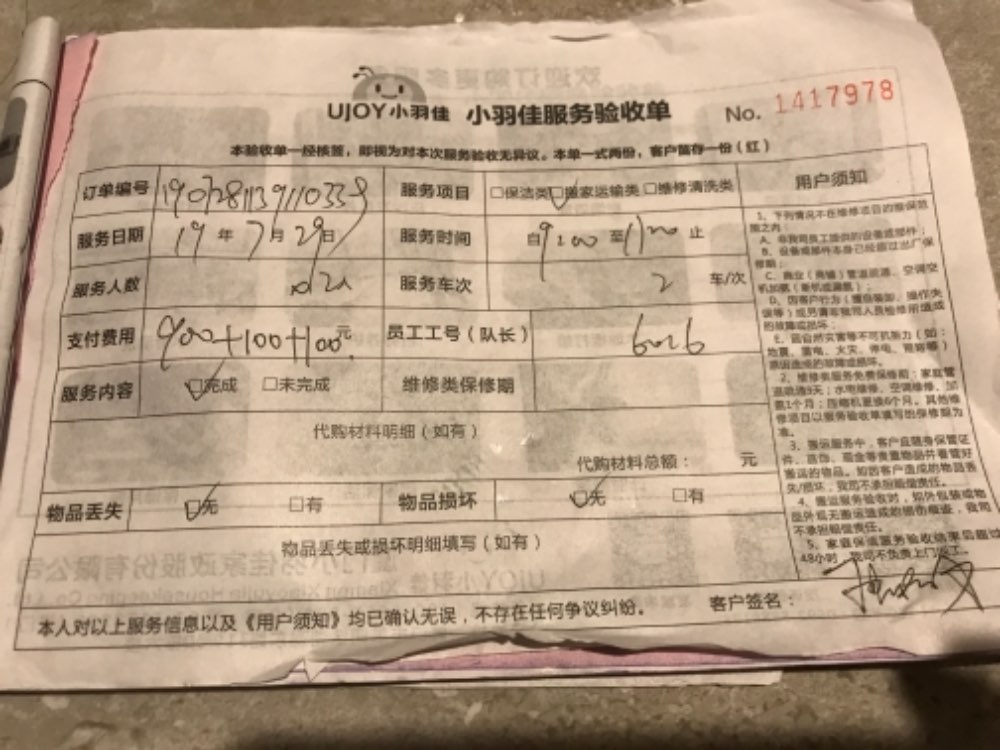 UJOY小羽佳 小羽佳服务验收单 No. 1417978
本验收单一经核签，即视为对本次服务验收无异议。本单一式两份，客户留存一份（红）
订单编号 服务项目 □保洁类 □搬家运输类 □维修清洗类
服务日期 19 年 7 月 29 日 服务时间 自 9:00 至 11:00 止
服务人数 2人 服务车次 2 车/次
支付费用 900+100+100 元 员工工号（队长） 6026
服务内容 □完成 □未完成 维修类保修期
代购材料明细（如有）
代购材料总额： 元
物品丢失 □无 □有 物品损坏 □无 □有
物品丢失或损坏明细填写（如有）
本人对以上服务信息以及《用户须知》均已确认无误，不存在任何争议纠纷。 客户签名：
用户须知
1、下列情况不在维修项目的维保范
围之内：
A、非我司员工提供的设备或部件；
B、设备或部件本身已经超过出厂保
修期；
C、商业（商铺）管道疏通、空调空
D、因客户行为（擅自装卸、操作失
误等）或另请非我司人员检修所造成
的故障或损坏；
E、超自然灾害等不可抗力（如：
地震、雷电、火灾、停电、短路等）
原因造成的故障或损坏。
2、维修类服务免费保修期：家庭管
道疏通3天；水电维修、空调维修、加
氨1个月；压缩机更换6个月。其他维
修项目以服务验收单填写的保修期为
准。
3、搬运服务中，客户应随身保管证
件、首饰、现金等贵重物品并看管好
搬运的物品。如因客户造成的物品丢
失/损坏，我司不承担赔偿责任。
4、搬运服务验收时，如外包装或物
品外包无搬运造成的损伤痕迹，我司
不承担赔偿责任。
5、家庭保洁服务验收结束后超过
48小时，我司不负责上门返工。